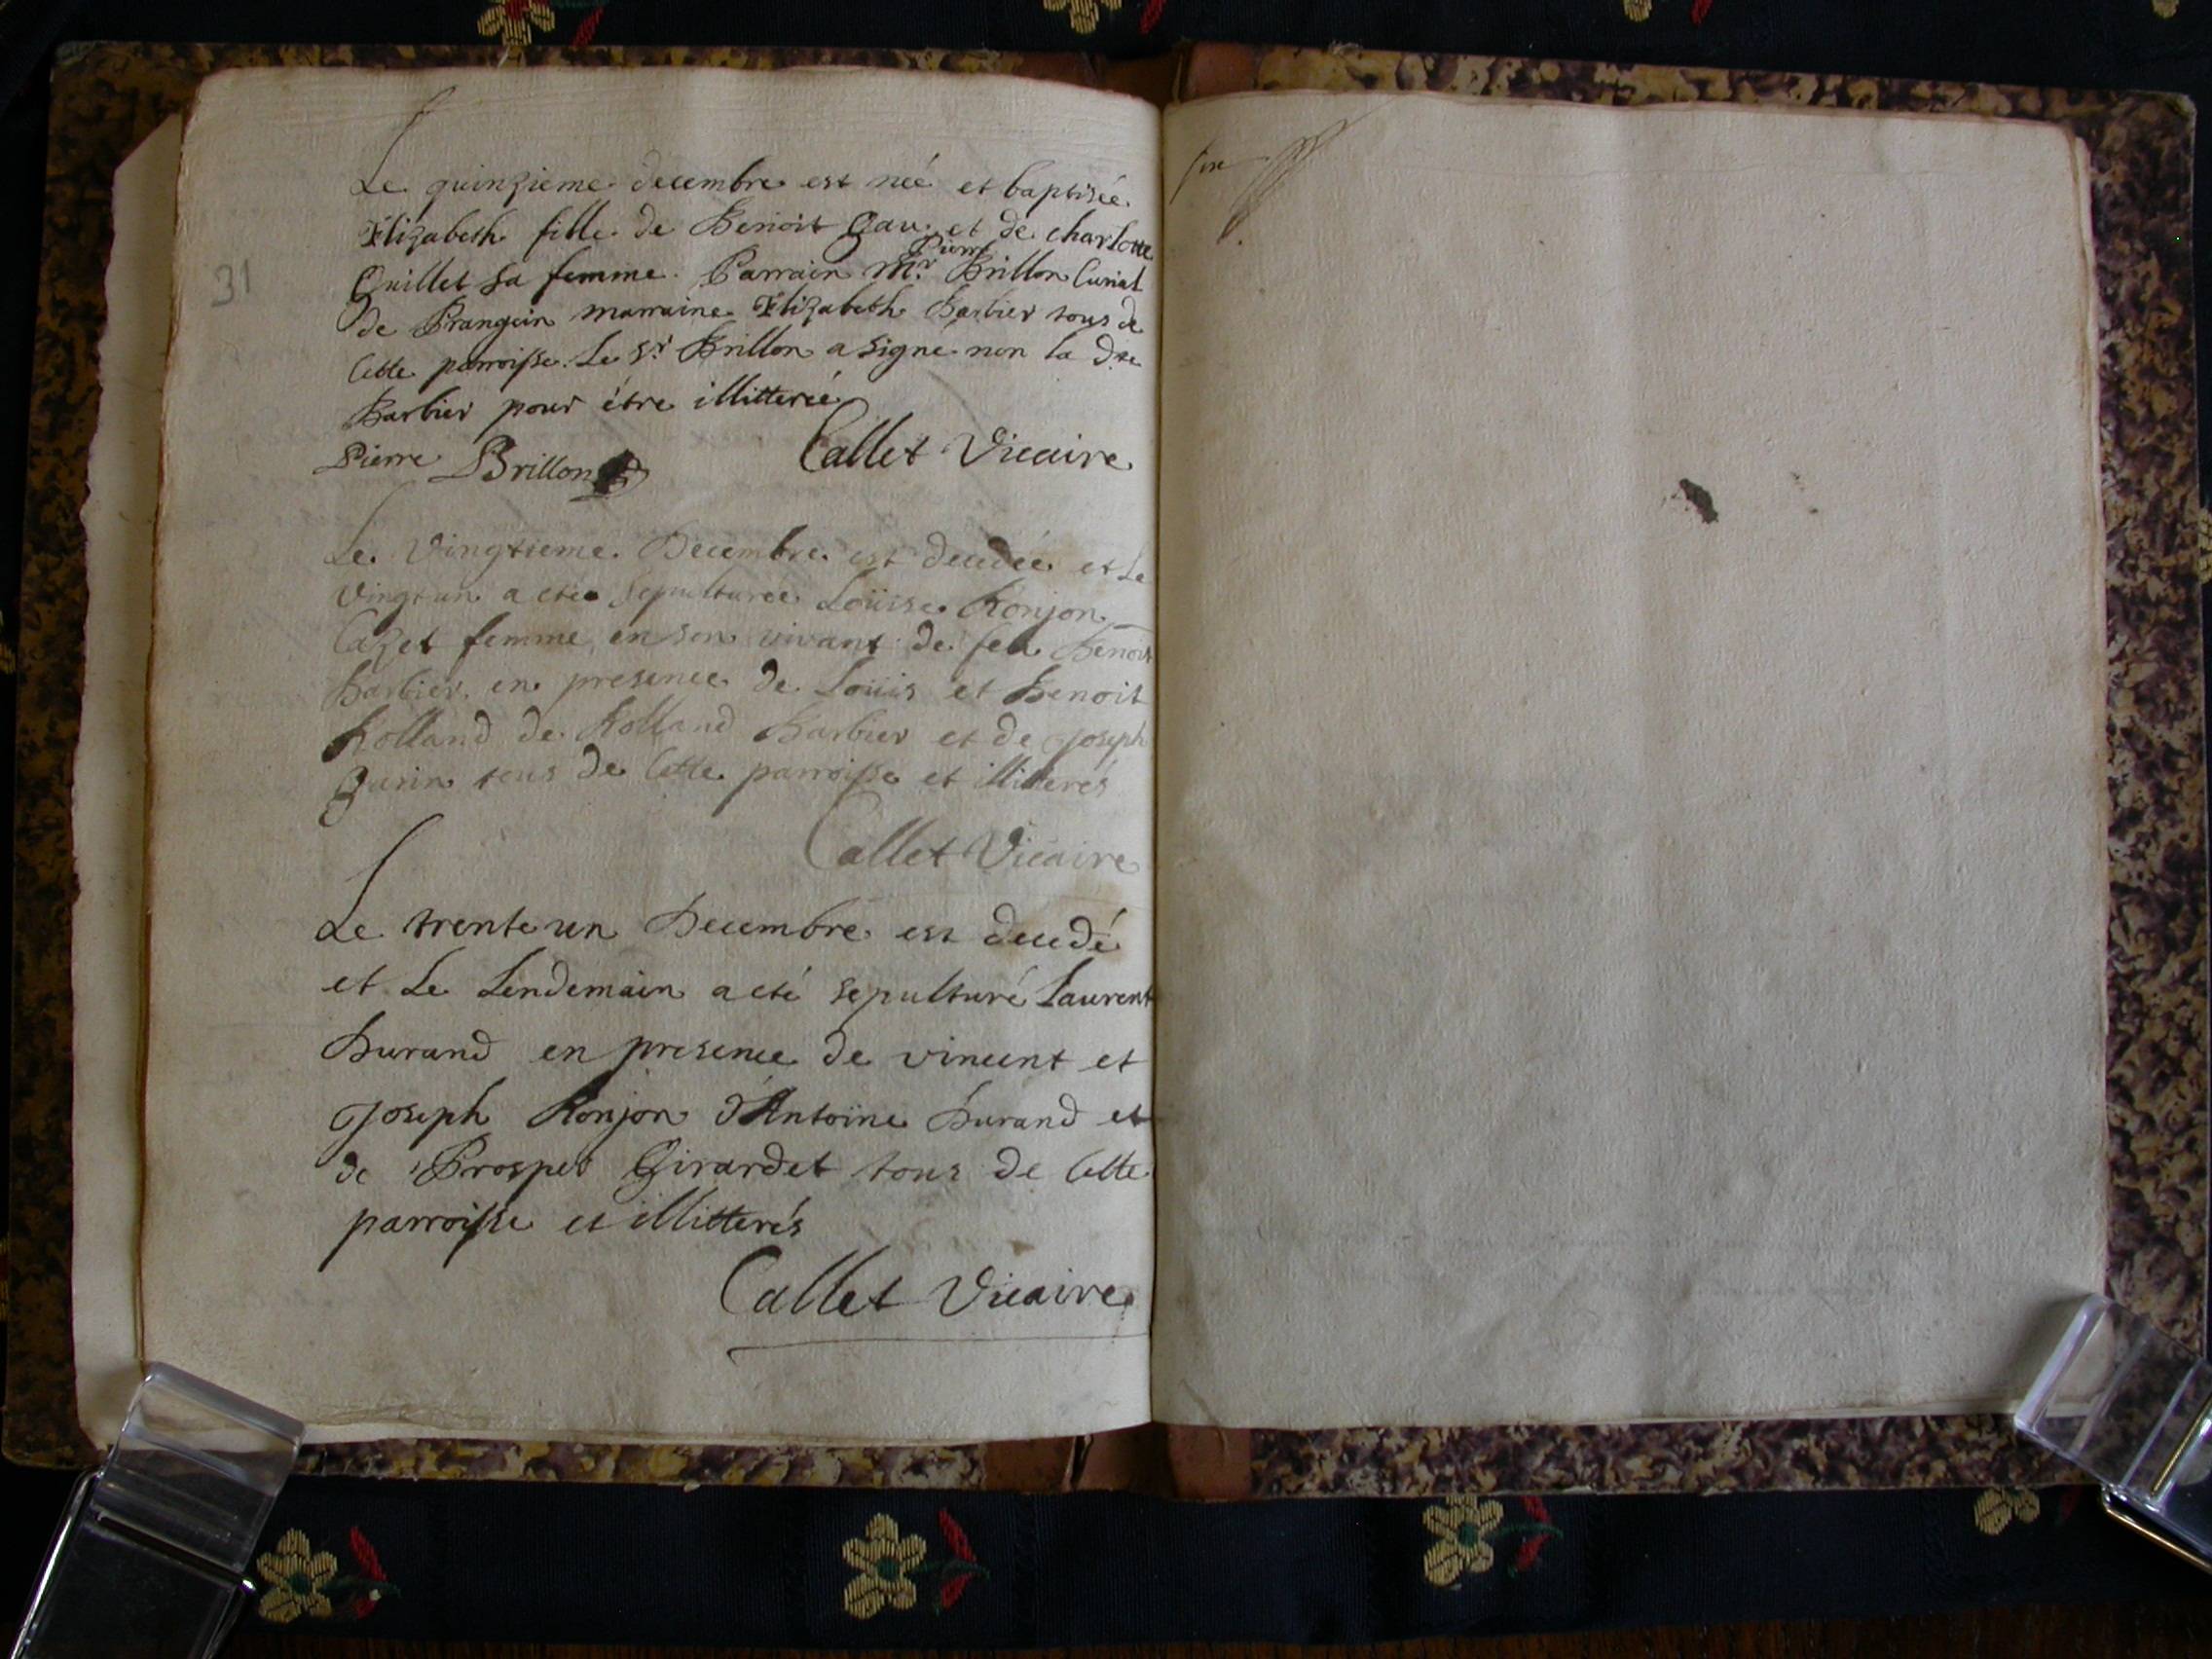 Le quinzieme decembre est néé et baptisée
Elizabeth fille de Benoit Gau et de charlotte
Quillet sa femme. Parrain Mr. Pierre Brillon Curial
31
de Prangein marraine Elizabeth Barbier tous de
cette parroisse. Le Sr. Brillon a signé non la dte
Barbier pour étre illitterée
Callet Vicaire
Pierre Brillon
Le Vingtieme Decembre est decedée et Le
vingt un a etée sepulturée Loüise Ronjon
Cazet femme en son vivant de feu Benoit
Barbier en presence de Loüis et Benoit
Rolland de Rolland Barbier et de Joseph
Gurin tous de cette parroisse et illitterés
Callet Vicaire
Le trente un Decembre est decedé
et Le Lendemain a eté sepulturé Laurent
Durand en presence de vincent et
Joseph Ronjon d'Antoine Durand et
de Prosper Girardet tous de cette
parroisse et illitterés
Callet Vicaire